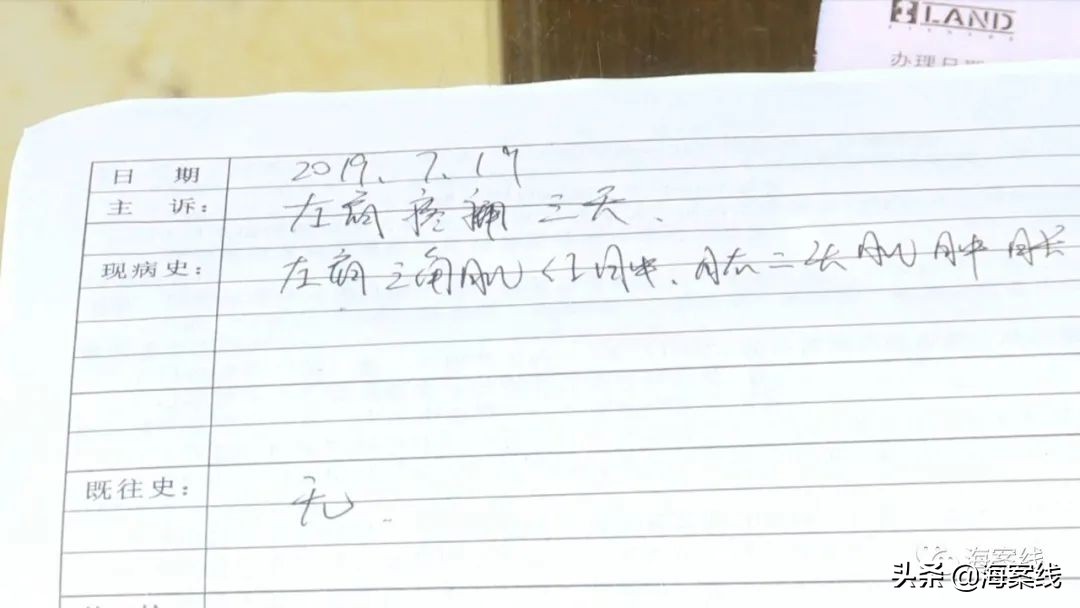 LAND
办理日期
日 期 2019.7.17
主 诉： 左肩疼痛三天.
现病史： 左肩三角肌红肿、肱二头肌肿
既往史： 无
海案线
头条 @海案线